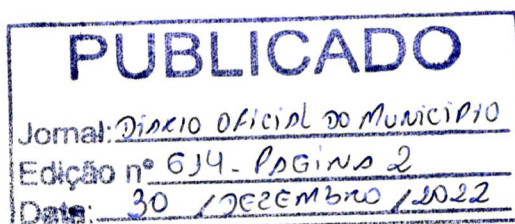 PUBLICADO
Jornal: DIÁRIO OFICIAL DO MUNICIPIO
Edição nº 614 - PAGINA 2
Data: 30 / DEZEMBRO / 2022